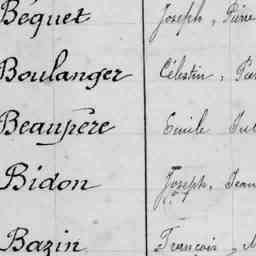 Béquet Joseph, Pierre
Boulanger Célestin,
Beaupère Emile
Bidon Joseph, Jean
Bazin François,